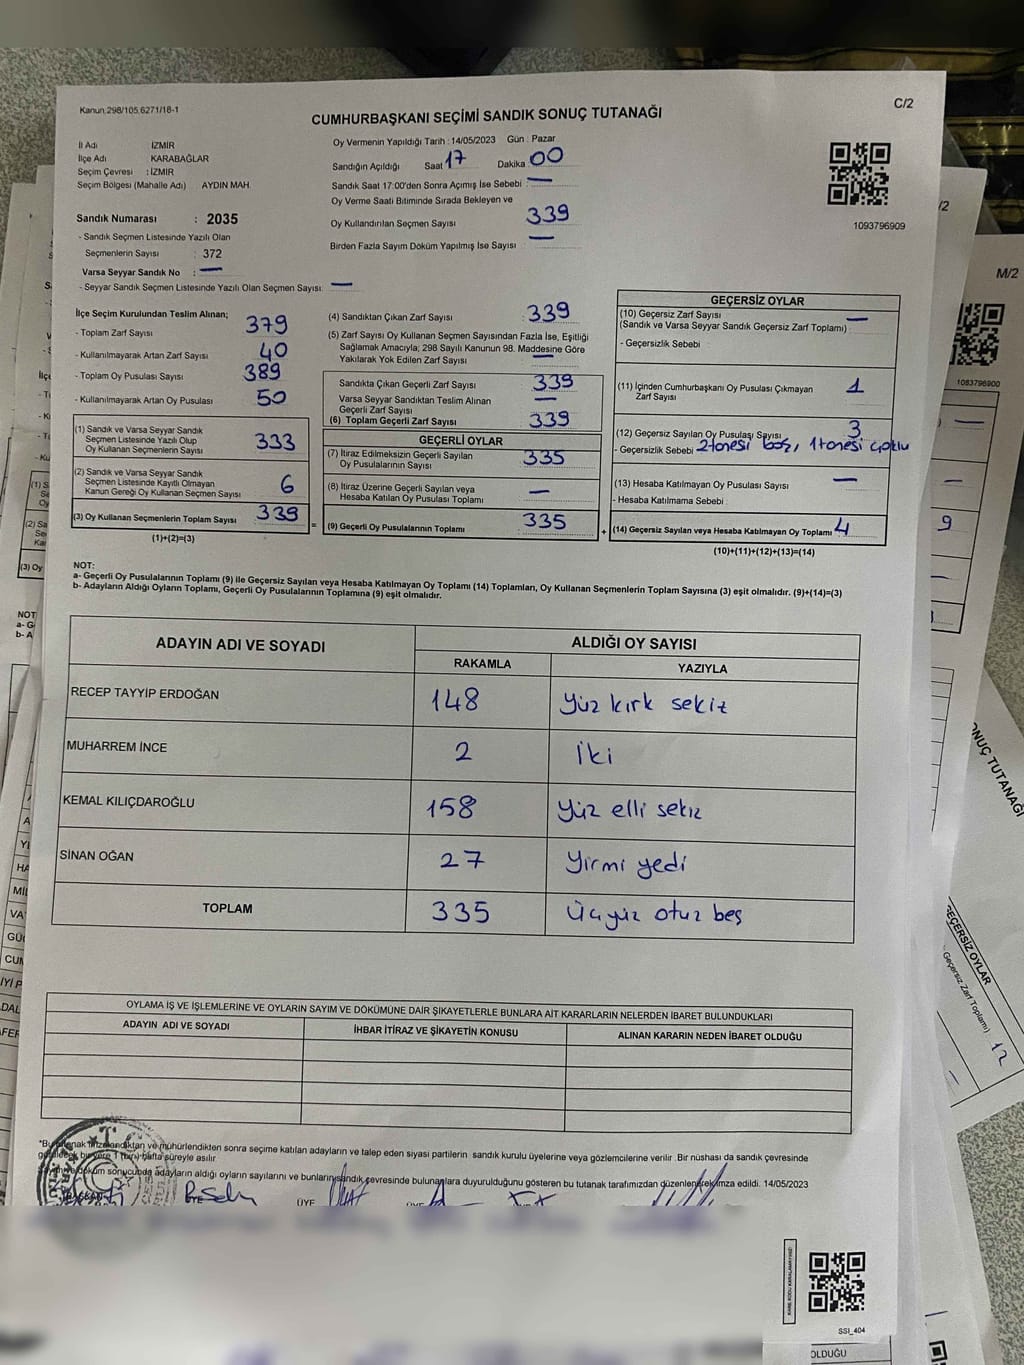 Kanun:298/105,6271/18-1
C/2
CUMHURBAŞKANI SEÇİMİ SANDIK SONUÇ TUTANAĞI
İl Adı İZMİR
İlçe Adı KARABAĞLAR
Seçim Çevresi : İZMİR
Seçim Bölgesi (Mahalle Adı) AYDIN MAH.
Sandık Numarası : 2035
- Sandık Seçmen Listesinde Yazılı Olan
Seçmenlerin Sayısı : 372
Varsa Seyyar Sandık No : —
- Seyyar Sandık Seçmen Listesinde Yazılı Olan Seçmen Sayısı: —
Oy Vermenin Yapıldığı Tarih : 14/05/2023 Gün : Pazar
Sandığın Açıldığı Saat 17 Dakika 00
Sandık Saat 17:00'den Sonra Açılmış İse Sebebi : —
Oy Verme Saati Bitiminde Sırada Bekleyen ve
Oy Kullandırılan Seçmen Sayısı 339
Birden Fazla Sayım Döküm Yapılmış İse Sayısı : —
1093796909
İlçe Seçim Kurulundan Teslim Alınan;
- Toplam Zarf Sayısı 379
- Kullanılmayarak Artan Zarf Sayısı 40
- Toplam Oy Pusulası Sayısı 389
- Kullanılmayarak Artan Oy Pusulası 50
(1) Sandık ve Varsa Seyyar Sandık
Seçmen Listesinde Yazılı Olup
Oy Kullanan Seçmenlerin Sayısı 333
(2) Sandık ve Varsa Seyyar Sandık
Seçmen Listesinde Kayıtlı Olmayan
Kanun Gereği Oy Kullanan Seçmen Sayısı 6
(3) Oy Kullanan Seçmenlerin Toplam Sayısı 339
(1)+(2)=(3)
=
(4) Sandıktan Çıkan Zarf Sayısı : 339
(5) Zarf Sayısı Oy Kullanan Seçmen Sayısından Fazla İse, Eşitliği
Sağlamak Amacıyla; 298 Sayılı Kanunun 98. Maddesine Göre
Yakılarak Yok Edilen Zarf Sayısı —
Sandıkta Çıkan Geçerli Zarf Sayısı : 339
Varsa Seyyar Sandıktan Teslim Alınan
Geçerli Zarf Sayısı —
(6) Toplam Geçerli Zarf Sayısı : 339
GEÇERLİ OYLAR
(7) İtiraz Edilmeksizin Geçerli Sayılan
Oy Pusulalarının Sayısı : 335
(8) İtiraz Üzerine Geçerli Sayılan veya
Hesaba Katılan Oy Pusulası Toplamı —
(9) Geçerli Oy Pusulalarının Toplamı : 335
+
GEÇERSİZ OYLAR
(10) Geçersiz Zarf Sayısı
(Sandık ve Varsa Seyyar Sandık Geçersiz Zarf Toplamı) : —
- Geçersizlik Sebebi :
(11) İçinden Cumhurbaşkanı Oy Pusulası Çıkmayan
Zarf Sayısı 1
(12) Geçersiz Sayılan Oy Pusulası Sayısı 3
- Geçersizlik Sebebi 2 tanesi boş, 1 tanesi çoklu
(13) Hesaba Katılmayan Oy Pusulası Sayısı : —
- Hesaba Katılmama Sebebi :
(14) Geçersiz Sayılan veya Hesaba Katılmayan Oy Toplamı 4
(10)+(11)+(12)+(13)=(14)
NOT:
a- Geçerli Oy Pusulalarının Toplamı (9) ile Geçersiz Sayılan veya Hesaba Katılmayan Oy Toplamı (14) Toplamları, Oy Kullanan Seçmenlerin Toplam Sayısına (3) eşit olmalıdır. (9)+(14)=(3)
b- Adayların Aldığı Oyların Toplamı, Geçerli Oy Pusulalarının Toplamına (9) eşit olmalıdır.
ADAYIN ADI VE SOYADI ALDIĞI OY SAYISI
RAKAMLA YAZIYLA
RECEP TAYYİP ERDOĞAN 148 Yüz kırk sekiz
MUHARREM İNCE 2 İki
KEMAL KILIÇDAROĞLU 158 Yüz elli sekiz
SİNAN OĞAN 27 Yirmi yedi
TOPLAM 335 Üçyüz otuz beş
OYLAMA İŞ VE İŞLEMLERİNE VE OYLARIN SAYIM VE DÖKÜMÜNE DAİR ŞİKAYETLERLE BUNLARA AİT KARARLARIN NELERDEN İBARET BULUNDUKLARI
ADAYIN ADI VE SOYADI İHBAR İTİRAZ VE ŞİKAYETİN KONUSU ALINAN KARARIN NEDEN İBARET OLDUĞU
ve mühürlendikten sonra seçime katılan adayların ve talep eden siyasi partilerin sandık kurulu üyelerine veya gözlemcilerine verilir. Bir nüshası da sandık çevresinde
bir yere 1 (bir) hafta süreyle asılır.
döküm sonucunda adayların aldığı oyların sayılarını ve bunların sandık çevresinde bulunanlara duyurulduğunu gösteren bu tutanak tarafımızdan düzenlenerek imza edildi. 14/05/2023
ÜYE
SSI_404
OLDUĞU
M/2
1083796900
9
ONUÇ TUTANAĞI
GEÇERSİZ OYLAR
Geçersiz Zarf Toplamı)
12